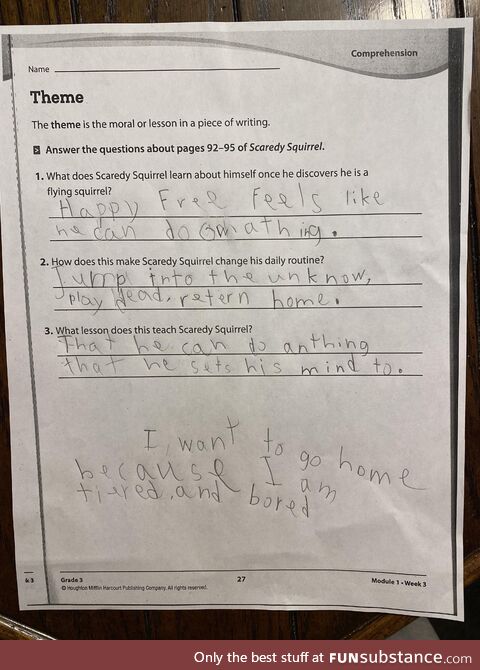 Comprehension
Name
Theme
The theme is the moral or lesson in a piece of writing.
Answer the questions about pages 92–95 of Scaredy Squirrel.
1. What does Scaredy Squirrel learn about himself once he discovers he is a
flying squirrel?
Happy Free Feels like
he can do
2. How does this make Scaredy Squirrel change his daily routine?
Jump into the unknow,
play dead, retern home.
3. What lesson does this teach Scaredy Squirrel?
That he can do anthing
that he sets his mind to.
I want to go home
because I am
tiered, and bored
k 3
Grade 3
© Houghton Mifflin Harcourt Publishing Company. All rights reserved.
27
Module 1 • Week 3
Only the best stuff at FUNsubstance.com